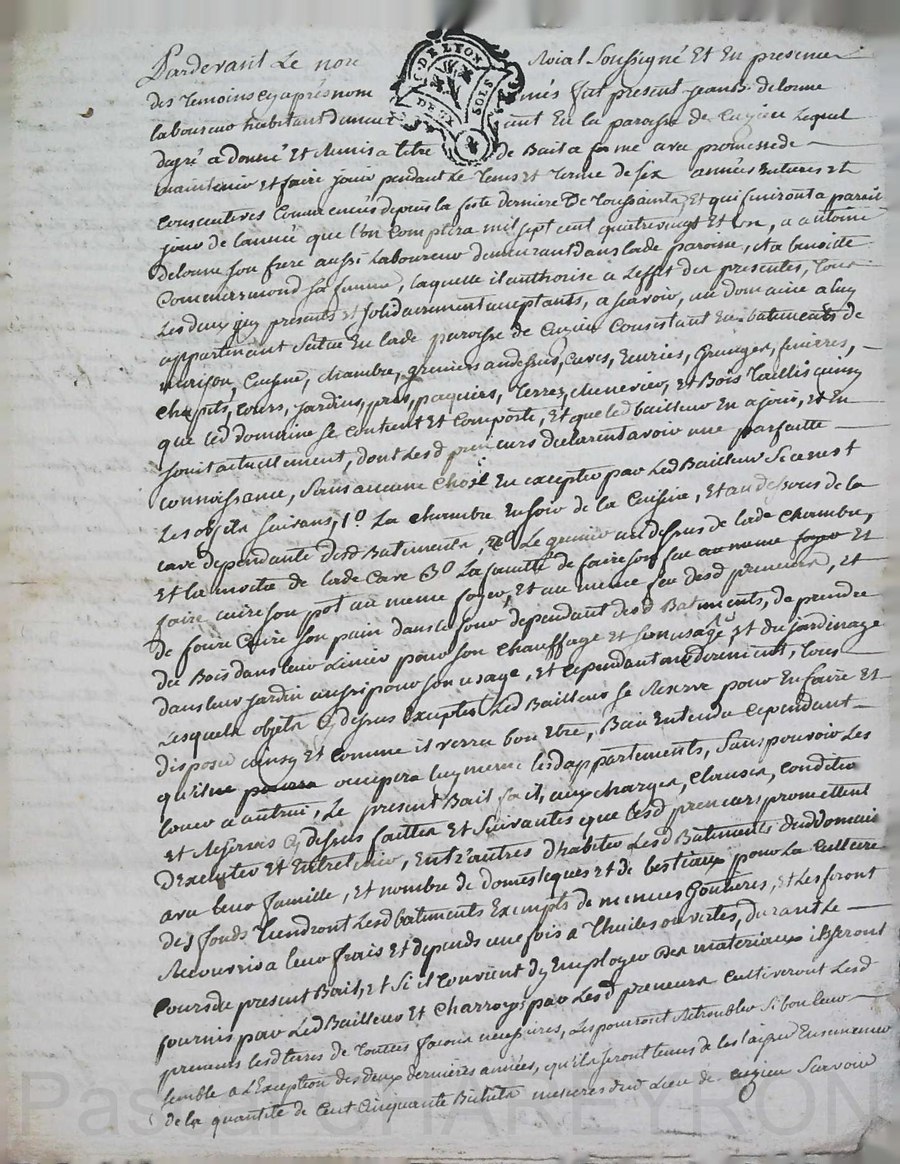 Pardevant Le nore Roial Soussigné Et En presence
G. DE LYON
DEUX SOLS
des Temoins cy après nommés fut present jean B. delorme
laboureur habitant demeurant En la paroisse de Cuzieu Lequel
degré a donné Et Remis a titre de Bail a ferme avec promesse de
maintenir Et faire jouir pendant Le Tems et Terme de six années Entieres Et
Consecutives Commencées depuis la feste derniere De Toussaints, Et qui finiront a pareil
jour de l'année que l'on Comptera mil sept cent quatrevingt Et un, a antoine
Delorme son frere aussi Laboureur demeurant dans lade paroisse, Et a benoite
sa femme, laquelle il authorise a L'effet des presentes, Tous
Les deux icy presents et solidairement acceptants, a sçavoir, un domaine a luy
appartenant scitué En lade paroisse de Cuzieu Consistant En batiments de
maison, Cuisine, chambre, greniers audessus, caves, Ecuries, Granges, fenieres,
chapits, cours, jardins, prés, paquiers, Terres, chenevier, et Bois Taillis ainsy
que led domaine se contient Et Comporte, Et que led bailleur En a joui, et En
jouit actuellement, dont Lesd preneurs declarent avoir une parfaitte
connoissance, sans aucune Chose En excepter par Led Bailleur Si ce n'est
Les objets suivans, 1o La chambre En soir de la Cuisine, Et au dessous de la
cave dependante desd Batiments, 2o Le grenier au dessus de lade chambre,
Et la moitié de lade Cave 3o La faculté de faire son feu au meme foyer Et
faire cuire son pot au meme foyer, Et au meme feu desd preneurs, Et
de faire Cuire son pain dans le four dependant desd Batiments, de prendre
du Bois dans leur Linier pour son chauffage et son usage Et du jardinage
dans leur jardin aussi pour son usage, Et Cependant moderement, Tous
Lesquels objets Cy dessus Exceptés Led Bailleur se Reserve pour En faire Et
disposer ainsy Et comme il verra bon Etre, Bien Entendu Cependant
qu'il ne pourra occupera luy meme lesd appartements, Sans pouvoir Les
louer a autrui, Le present Bail fait, aux charges, Clauses, Conditions
Et Reserves Cy dessus faittes Et Suivantes que Lesd preneurs promettent
D'Executer Et Entretenir, Entr'autres d'habiter Lesd Batiments dud domaine
avec leur famille, Et nombre de domestiques Et de bestiaux pour La Culture
des fonds Tiendront Lesd batiments Exempts de menues Goutieres, Et Les feront
Recouvrir a leur frais Et depends une fois a Thuiles ouvertes, durant Le
cours du present Bail, Et si il Convient d'y Employer Des materiaux ils seront
fournis par Led Bailleur Et Charroyés par Lesd preneurs Cultiveront Lesd
preneurs lesd terres de Toutes façons necessaires, Les pourront Retroubler Si bon leur
semble a L'Exception des deux dernieres années, qu'ils seront tenus de les laisser Ensemencer
de la quantité de Cent Cinquante Bichets mesures dud Lieu de Cuzieu Sçavoir
Pascal CHAREYRON